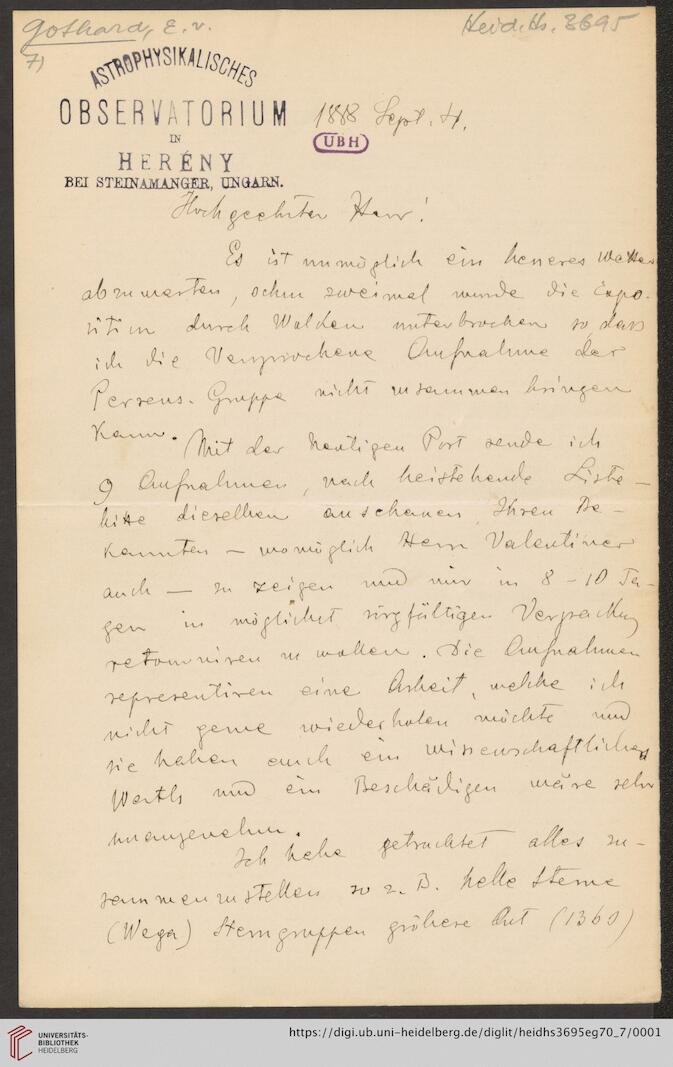 Gothard, E. v.
Heid. Hs. 3695
7)
ASTROPHYSIKALISCHES
OBSERVATORIUM
IN
HERÉNY
BEI STEINAMANGER, UNGARN.
1888 Sept. 4.
UBH
Hochgeehrter Herr!
Es ist unmöglich ein heiteres Wetter
abzuwarten, schon zweimal wurde die Expo-
sition durch Wolken unterbrochen so dass
ich die Versprochene Aufnahme der
Perseus-Gruppe nicht zusammen bringen
kann.
Mit der heutigen Post sende ich
9 Aufnahmen, nach beistehende Liste –
bitte dieselben anschauen, Ihren Be-
kannten – womöglich Herrn Valentiner
auch – zu zeigen und mir in 8–10 Ta-
gen in möglichst sorgfältigen Verpackung
retourniren zu wollen. Die Aufnahmen
representiren eine Arbeit, welche ich
nicht gerne wiederholen möchte und
sie haben auch ein wissenschaftliches
Werth und ein Beschädigen wäre sehr
unangenehm.
Ich habe getrachtet alles zu-
sammenzustellen so z. B. helle Sterne
(Wega) Sterngruppen gröbere Art (1360)
UNIVERSITÄTS-
BIBLIOTHEK
HEIDELBERG
https://digi.ub.uni-heidelberg.de/diglit/heidhs3695eg70_7/0001